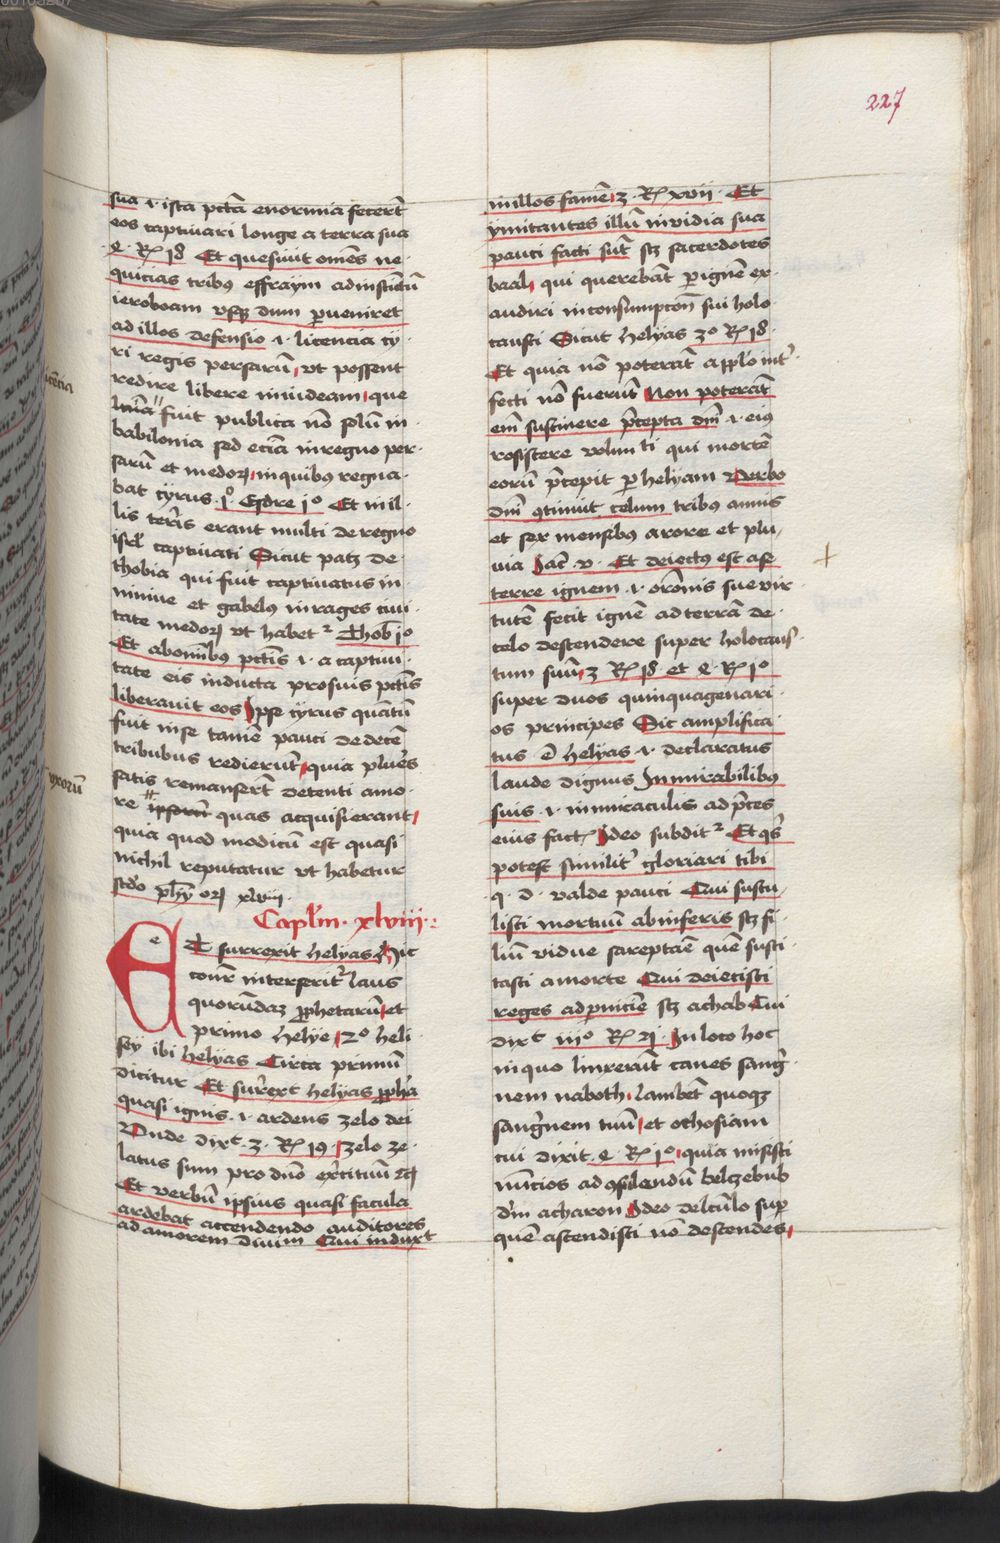 227
sua ⁊ ista pctā enormia fecerūt
eos captiuari longe a terra sua
4 Rͫ 18 Et quesiuit omēs ne
quicias tribus effraym ad instiētū
ieroboam usqꝫ dum perueniret
ad illos defensio ⁊ licencia cy
ri regis persarū, ut possent
redire libere in iudeam, que
fuit publica nō solū in
babilonia sed eciā in regno per
sarū et medoꝝ, in quibus regna
bat cyrus. 1º Esdre 1º Et in il
lis terris erant multi de regno
isrl captiuati Sicut patꝫ de
thobia qui fuit captiuatus in
niniue et gabelus in rages ciui
tate medoꝝ ut habet² Thob 1º
Et abomībus pctīs ⁊ a captiui
tate eis inducta pro suis pctīs
liberauit eos Ipse cyrus quātū
fuit in se tamē pauci de decē
tribubus redierūt, quia plures
satis remanserūt detenti amo
re ipsorū quas acquisierant,
quia quod modicū est quasi
nichil reputatur ut habetur
scdo phꝫ oꝝ xlviii
Caplm. xlviii.
ET surrexit helyas Hic
conr̄ interserit² laus
quorūdaꝫ prophetarū, et
primo helye, 2º heli
sey ibi helyas Circa primū
dicitur Et surrexit helyas propha
quasi ignis ⁊ ardens zelo dei
Unde dixᵗ 3 Rͫ 19, zelo ze
latus sum pro dnō exercituū
Et verbū ipsius quasi facula
ardebat accendendo auditores
ad amorem diuinū Qui induxᵗ
in illos famē, 3 Rͫ xvii Et
ymitantes illū inuidia sua
pauci facti sūt scꝫ sacerdotes
baal, qui querebāt per ignē ex
audiri in consumptōn sui holo
causti Sicut helyas 3º Rͫ 18
Et quia nō poterāt
fecti nō fuerūt Non poterāt
em sustinere precepta dnī ⁊ eius
resistere volunti qui mortē
eorū precepit per helyam Verbo
dnī ꝯtinuit celum tribus annis
et sex mensibus a rore et plu
uia Jac v Et deiectus est a se
terre ignem ⁊ oronis sue vir
tutē fecit ignē ad terrā de
celo descendere super holocaus
tum suū, 3 Rͫ 18 et 4 Rͫ 1º
super duos quinquagenari
os principes Sic amplifica
tus ē helyas ⁊ declaratus
laude dignus In mirabilibus
suis ⁊ in miraculis ad preces
eius fact Ideo subdit² Et qs
potest similit² gloriari tibi
q. d. valde pauci Qui sustu
listi mortuū ab inferis scꝫ fi
liū vidue sareptaē quē susci
tasti a morte Qui deiecisti
reges ad pernicie scꝫ achab Cui
dixᵗ iiiº Rͫ 21. In loco hoc
in quo linxerāut canes sangᵒ
nem naboth, lambēt quoqꝫ
sangᵒnem tuū, et othosiam
cui dixit. 4 Rͫ 1º, quia misisti
nūcios ad ꝯsulendū belzebub
dm acharon Ideo de lectulo sup
quē ascendisti nō descendes,